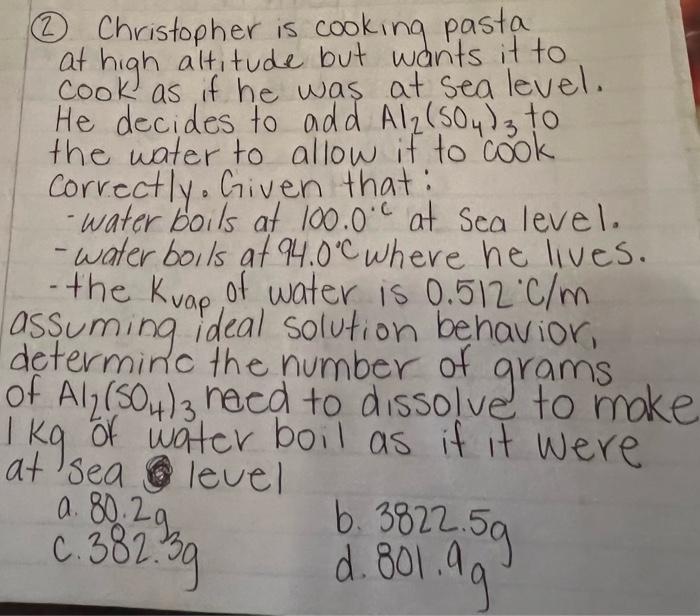 ② Christopher is cooking pasta
at high altitude but wants it to
cook as if he was at sea level.
He decides to add Al₂(SO₄)₃ to
the water to allow it to cook
correctly. Given that:
- water boils at 100.0°C at sea level.
- water boils at 94.0°C where he lives.
- the Kvap of water is 0.512°C/m
assuming ideal solution behavior,
determine the number of grams
of Al₂(SO₄)₃ need to dissolve to make
1 kg of water boil as if it were
at sea level
a. 80.2g b. 3822.5g
c. 382.3g d. 801.9g